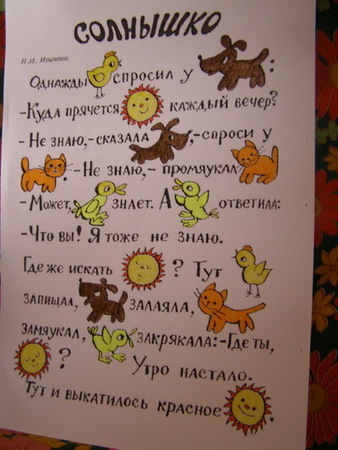 СОЛНЫШКО
Н.И. Иванова
Однажды спросил у :
-Куда прячется каждый вечер?
-Не знаю,-сказала ,-спроси у
.-Не знаю,- промяукал
-Может, знает. А ответила:
-Что вы! Я тоже не знаю.
Где же искать ? Тут
запищал, залаяла,
замяукал, закрякала:-Где ты,
? Утро настало.
Тут и выкатилось красное .